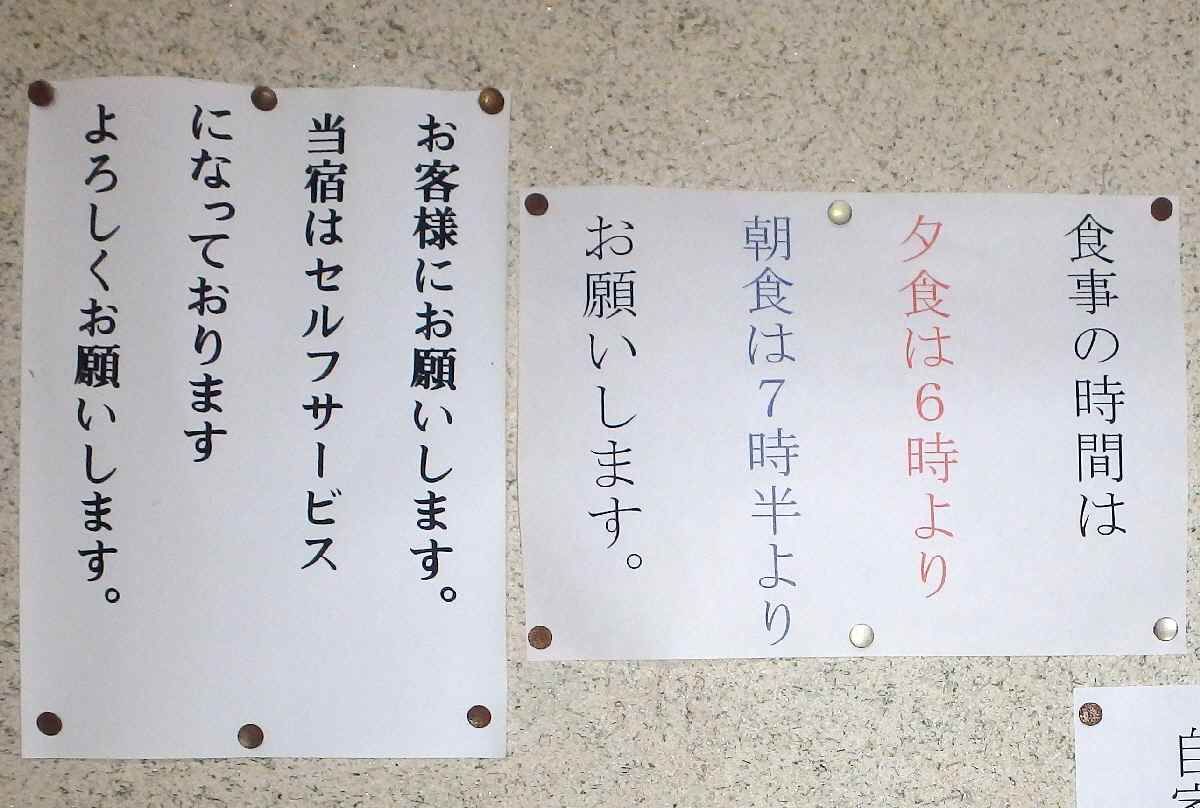 お客様にお願いします。
当宿はセルフサービス
になっております
よろしくお願いします。
食事の時間は
夕食は6時より
朝食は7時半より
お願いします。
自